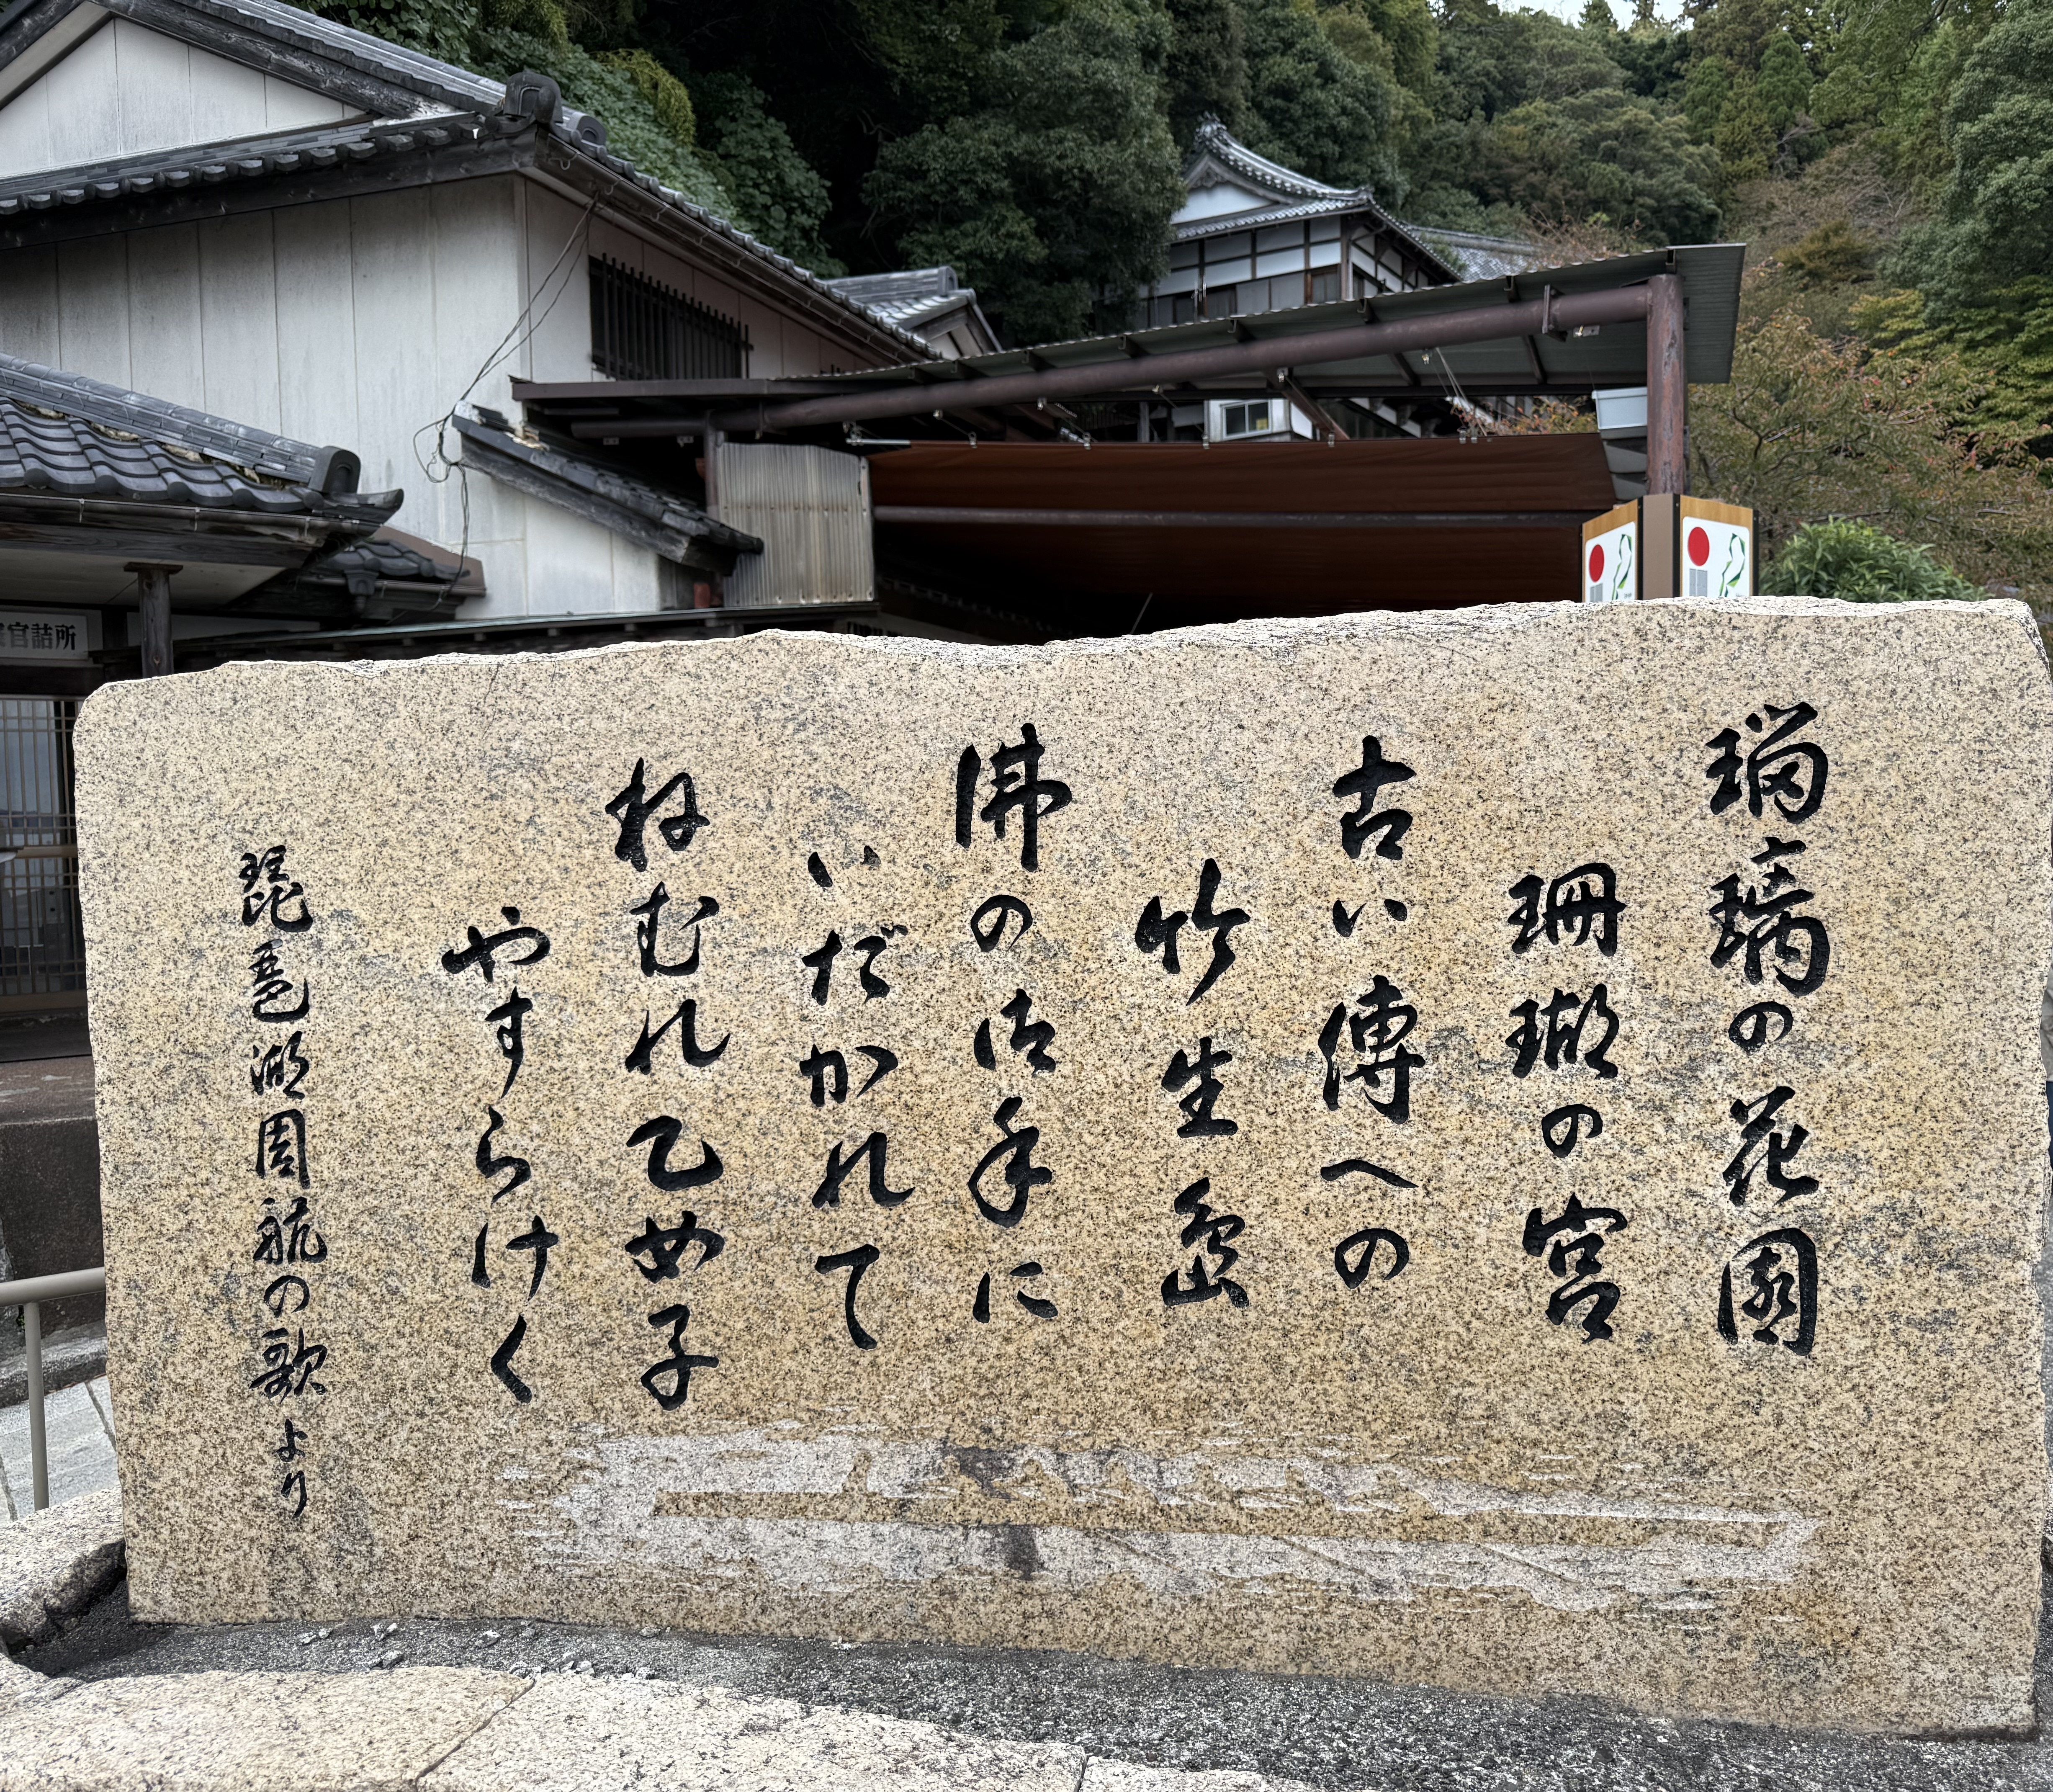 瑠璃の花園
珊瑚の宮
古い傳への
竹生島
佛の御手に
いだかれて
ねむれ乙め子
やすらけく
琵琶湖周航の歌より
官詰所